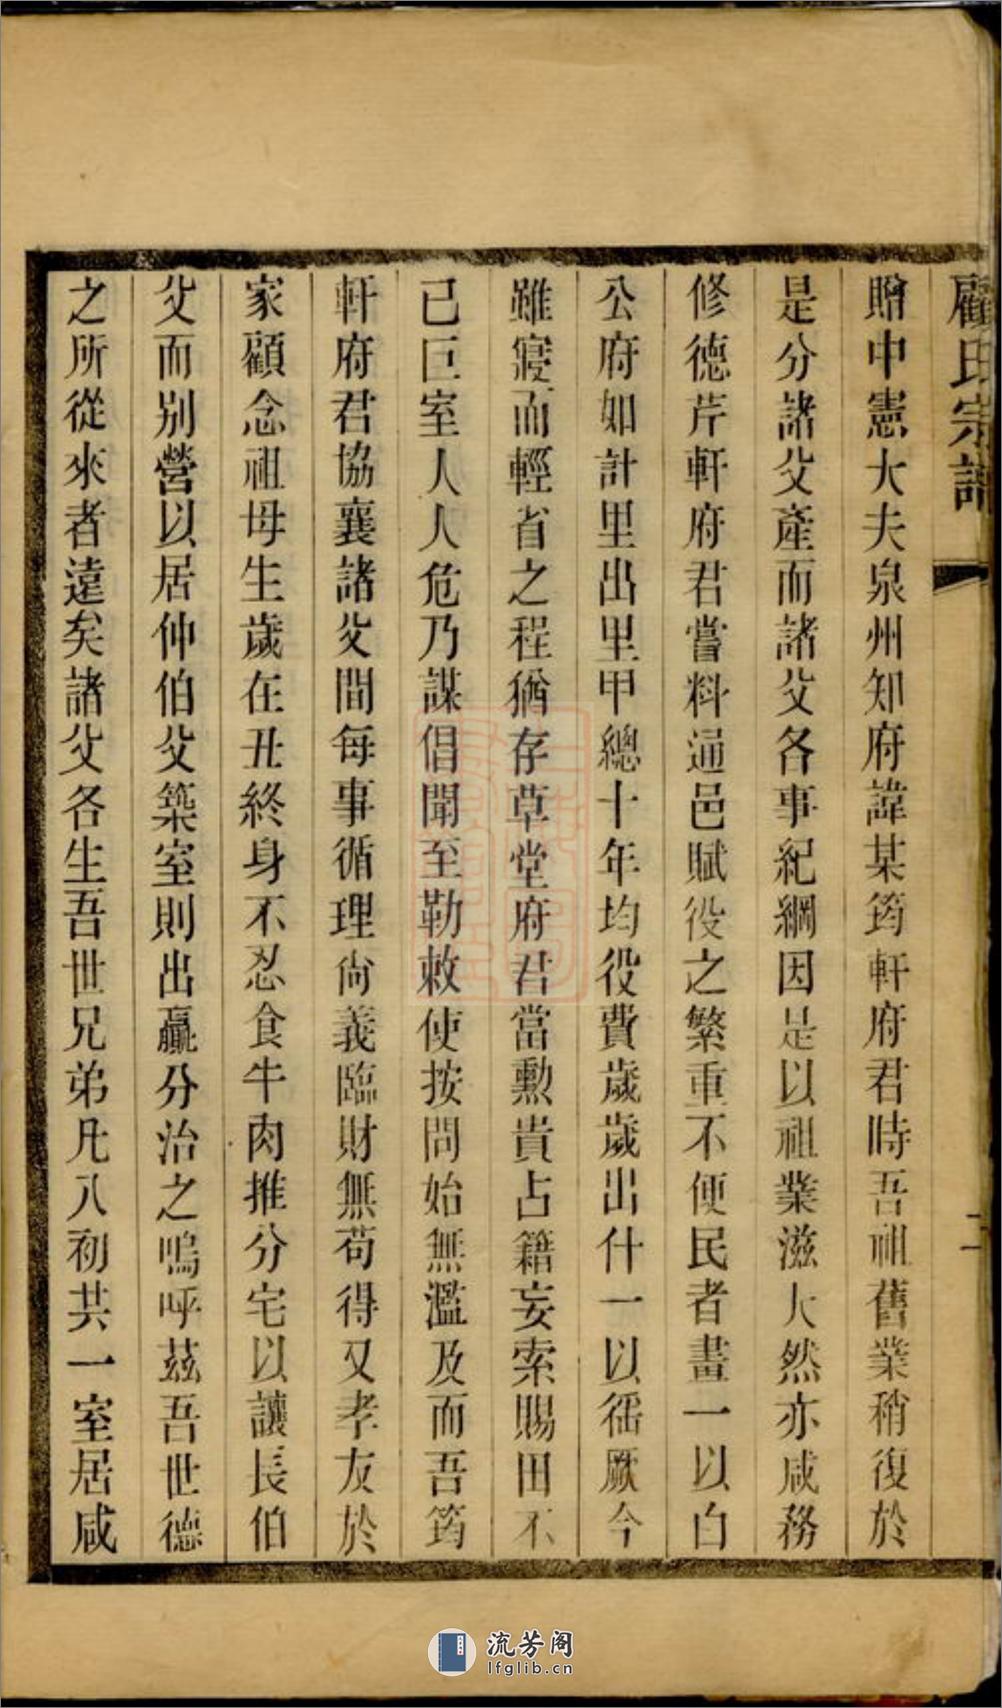 顧氏宗譜
二
贈中憲大夫泉州知府諱某筠軒府君時吾祖舊業稍復於
是分諸父產而諸父各事紀綱因是以祖業滋大然亦咸務
修德芹軒府君嘗料通邑賦役之繁重不便民者畫一以白
公府如計里出里甲總十年均役費歲歲出什一以徭厥今
雖寢而輕省之程猶存草堂府君當勳貴占籍妄索賜田不
已巨室人人危乃謀倡聞至勒敕使按問始無濫及而吾筠
軒府君協襄諸父間每事循理尙義臨財無苟得又孝友於
家顧念祖母生歲在丑終身不忍食牛肉推分宅以讓長伯
父而別營以居仲伯父築室則出贏分治之嗚呼茲吾世德
之所從來者遠矣諸父各生吾世兄弟凡八初共一室居咸
流芳阁
lfglib.cn